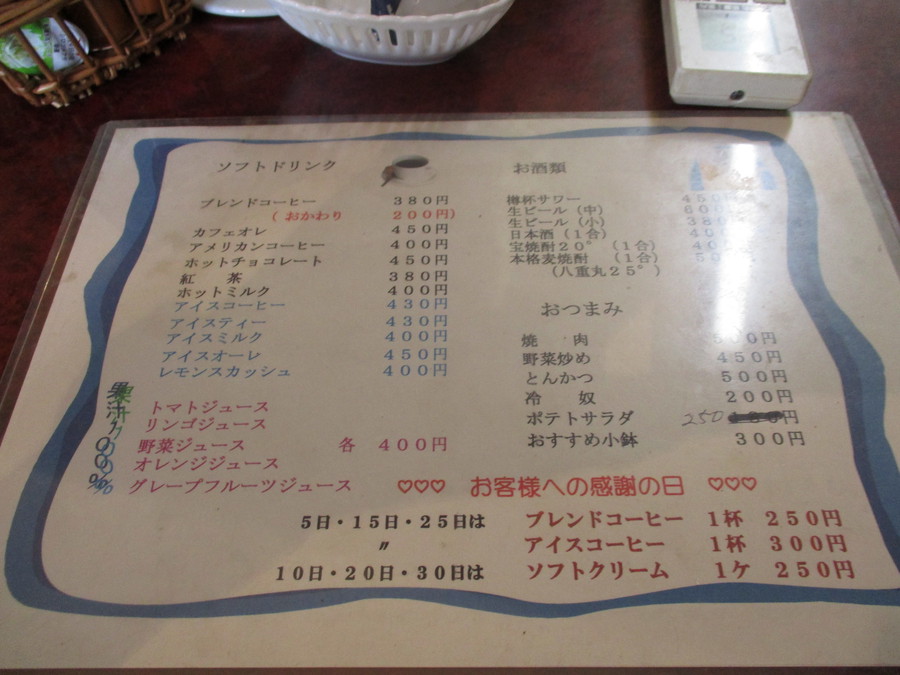 ソフトドリンク
ブレンドコーヒー 380円
(おかわり 200円)
カフェオレ 450円
アメリカンコーヒー 400円
ホットチョコレート 450円
紅 茶 380円
ホットミルク 400円
アイスコーヒー 430円
アイスティー 430円
アイスミルク 400円
アイスオーレ 450円
レモンスカッシュ 400円
果汁100%
トマトジュース
リンゴジュース
野菜ジュース 各 400円
オレンジジュース
グレープフルーツジュース
お酒類
樽杯サワー 450
生ビール(中)
生ビール(小) 380
日本酒(1合)
宝焼酎20°(1合)
本格麦焼酎 (1合)
(八重丸25°)
おつまみ
焼 肉 500円
野菜炒め 450円
とんかつ 500円
冷 奴 200円
ポテトサラダ 250 円
おすすめ小鉢 300円
♡♡♡ お客様への感謝の日 ♡♡♡
5日・15日・25日は ブレンドコーヒー 1杯 250円
〃 アイスコーヒー 1杯 300円
10日・20日・30日は ソフトクリーム 1ケ 250円